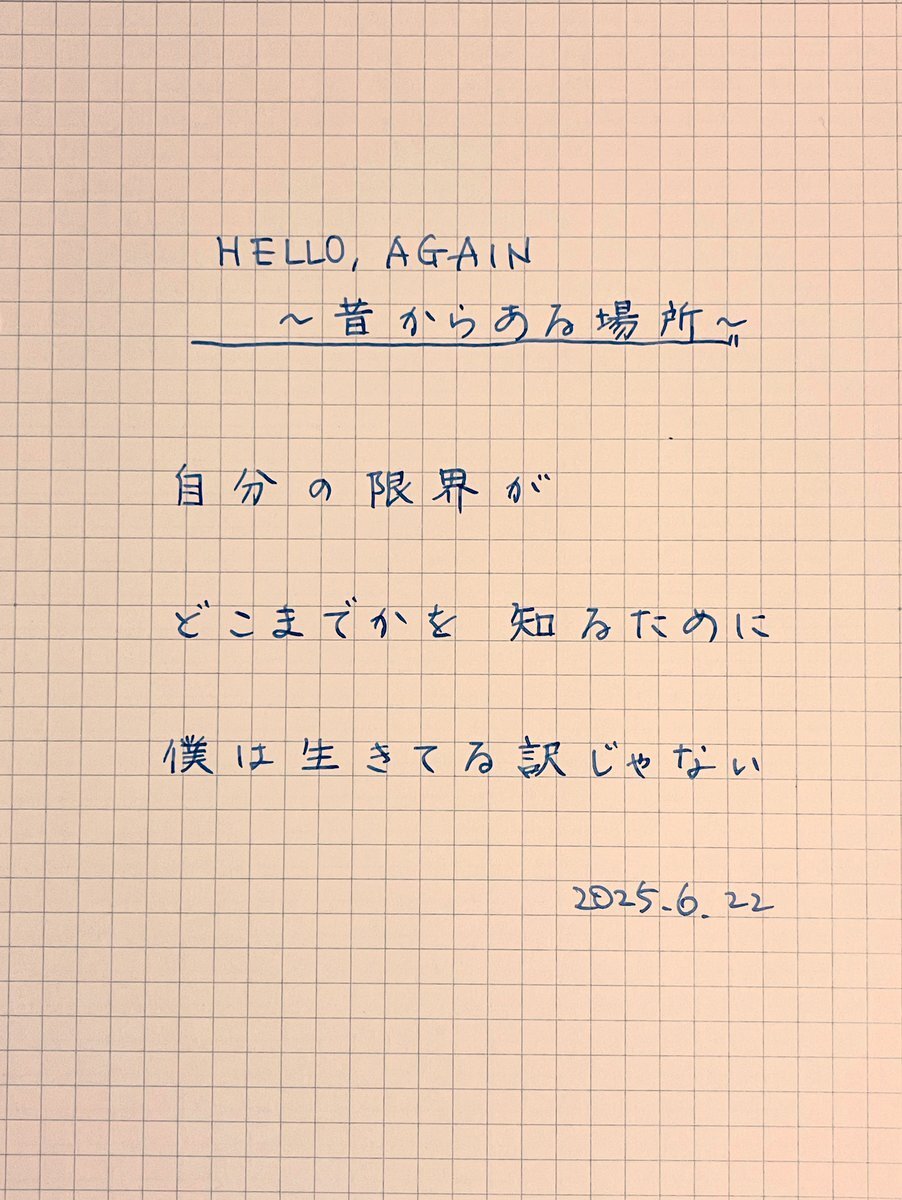 HELLO, AGAIN
～昔からある場所～
自分の限界が
どこまでかを 知るために
僕は生きてる訳じゃない
2025.6.22